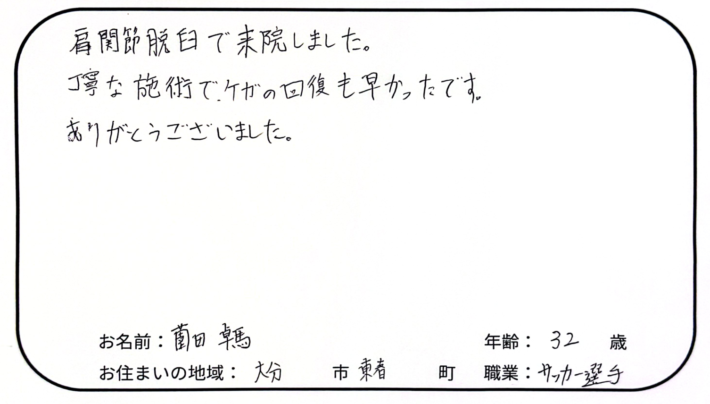 肩関節脱臼で来院しました。
丁寧な施術で、ケガの回復も早かったです。
ありがとうございました。
お名前：薗田 卓馬 年齢： 32 歳
お住まいの地域： 大分 市 東春 町 職業：サッカー選手